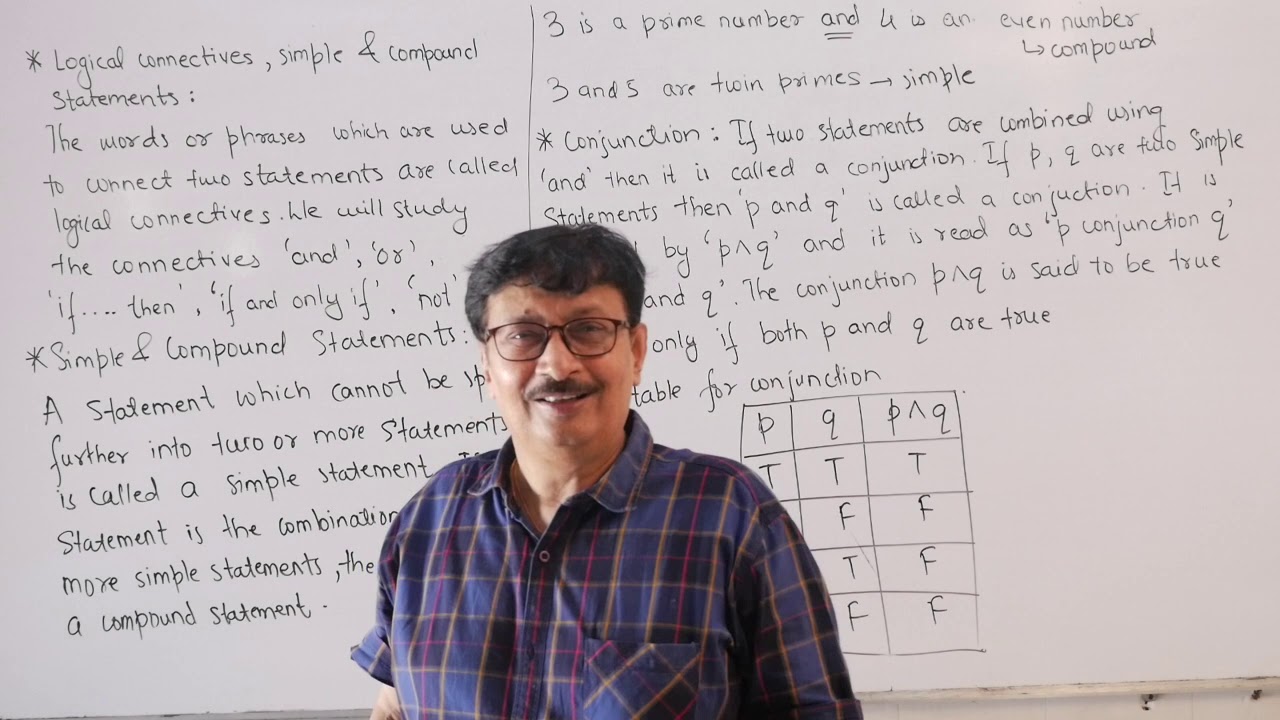 * Logical connectives, simple & compound
Statements:
The words or phrases which are used
to connect two statements are called
logical connectives. We will study
the connectives 'and', 'or',
'if .... then', 'if and only if', 'not'
* Simple & Compound Statements:
A statement which cannot be
further into two or more statements
is called a simple statement.
Statement is the combination
more simple statements, the
a compound statement.
3 is a prime number and 4 is an even number
↳ compound
3 and 5 are twin primes → simple
* Conjunction: If two statements are combined using
'and' then it is called a conjunction. If p, q are two simple
Statements then 'p and q' is called a conjuction. It is
by 'p∧q' and it is read as 'p conjunction q'
and q'. The conjunction p∧q is said to be true
only if both p and q are true
table for conjunction
p q p∧q
T T T
F F
T F
F F